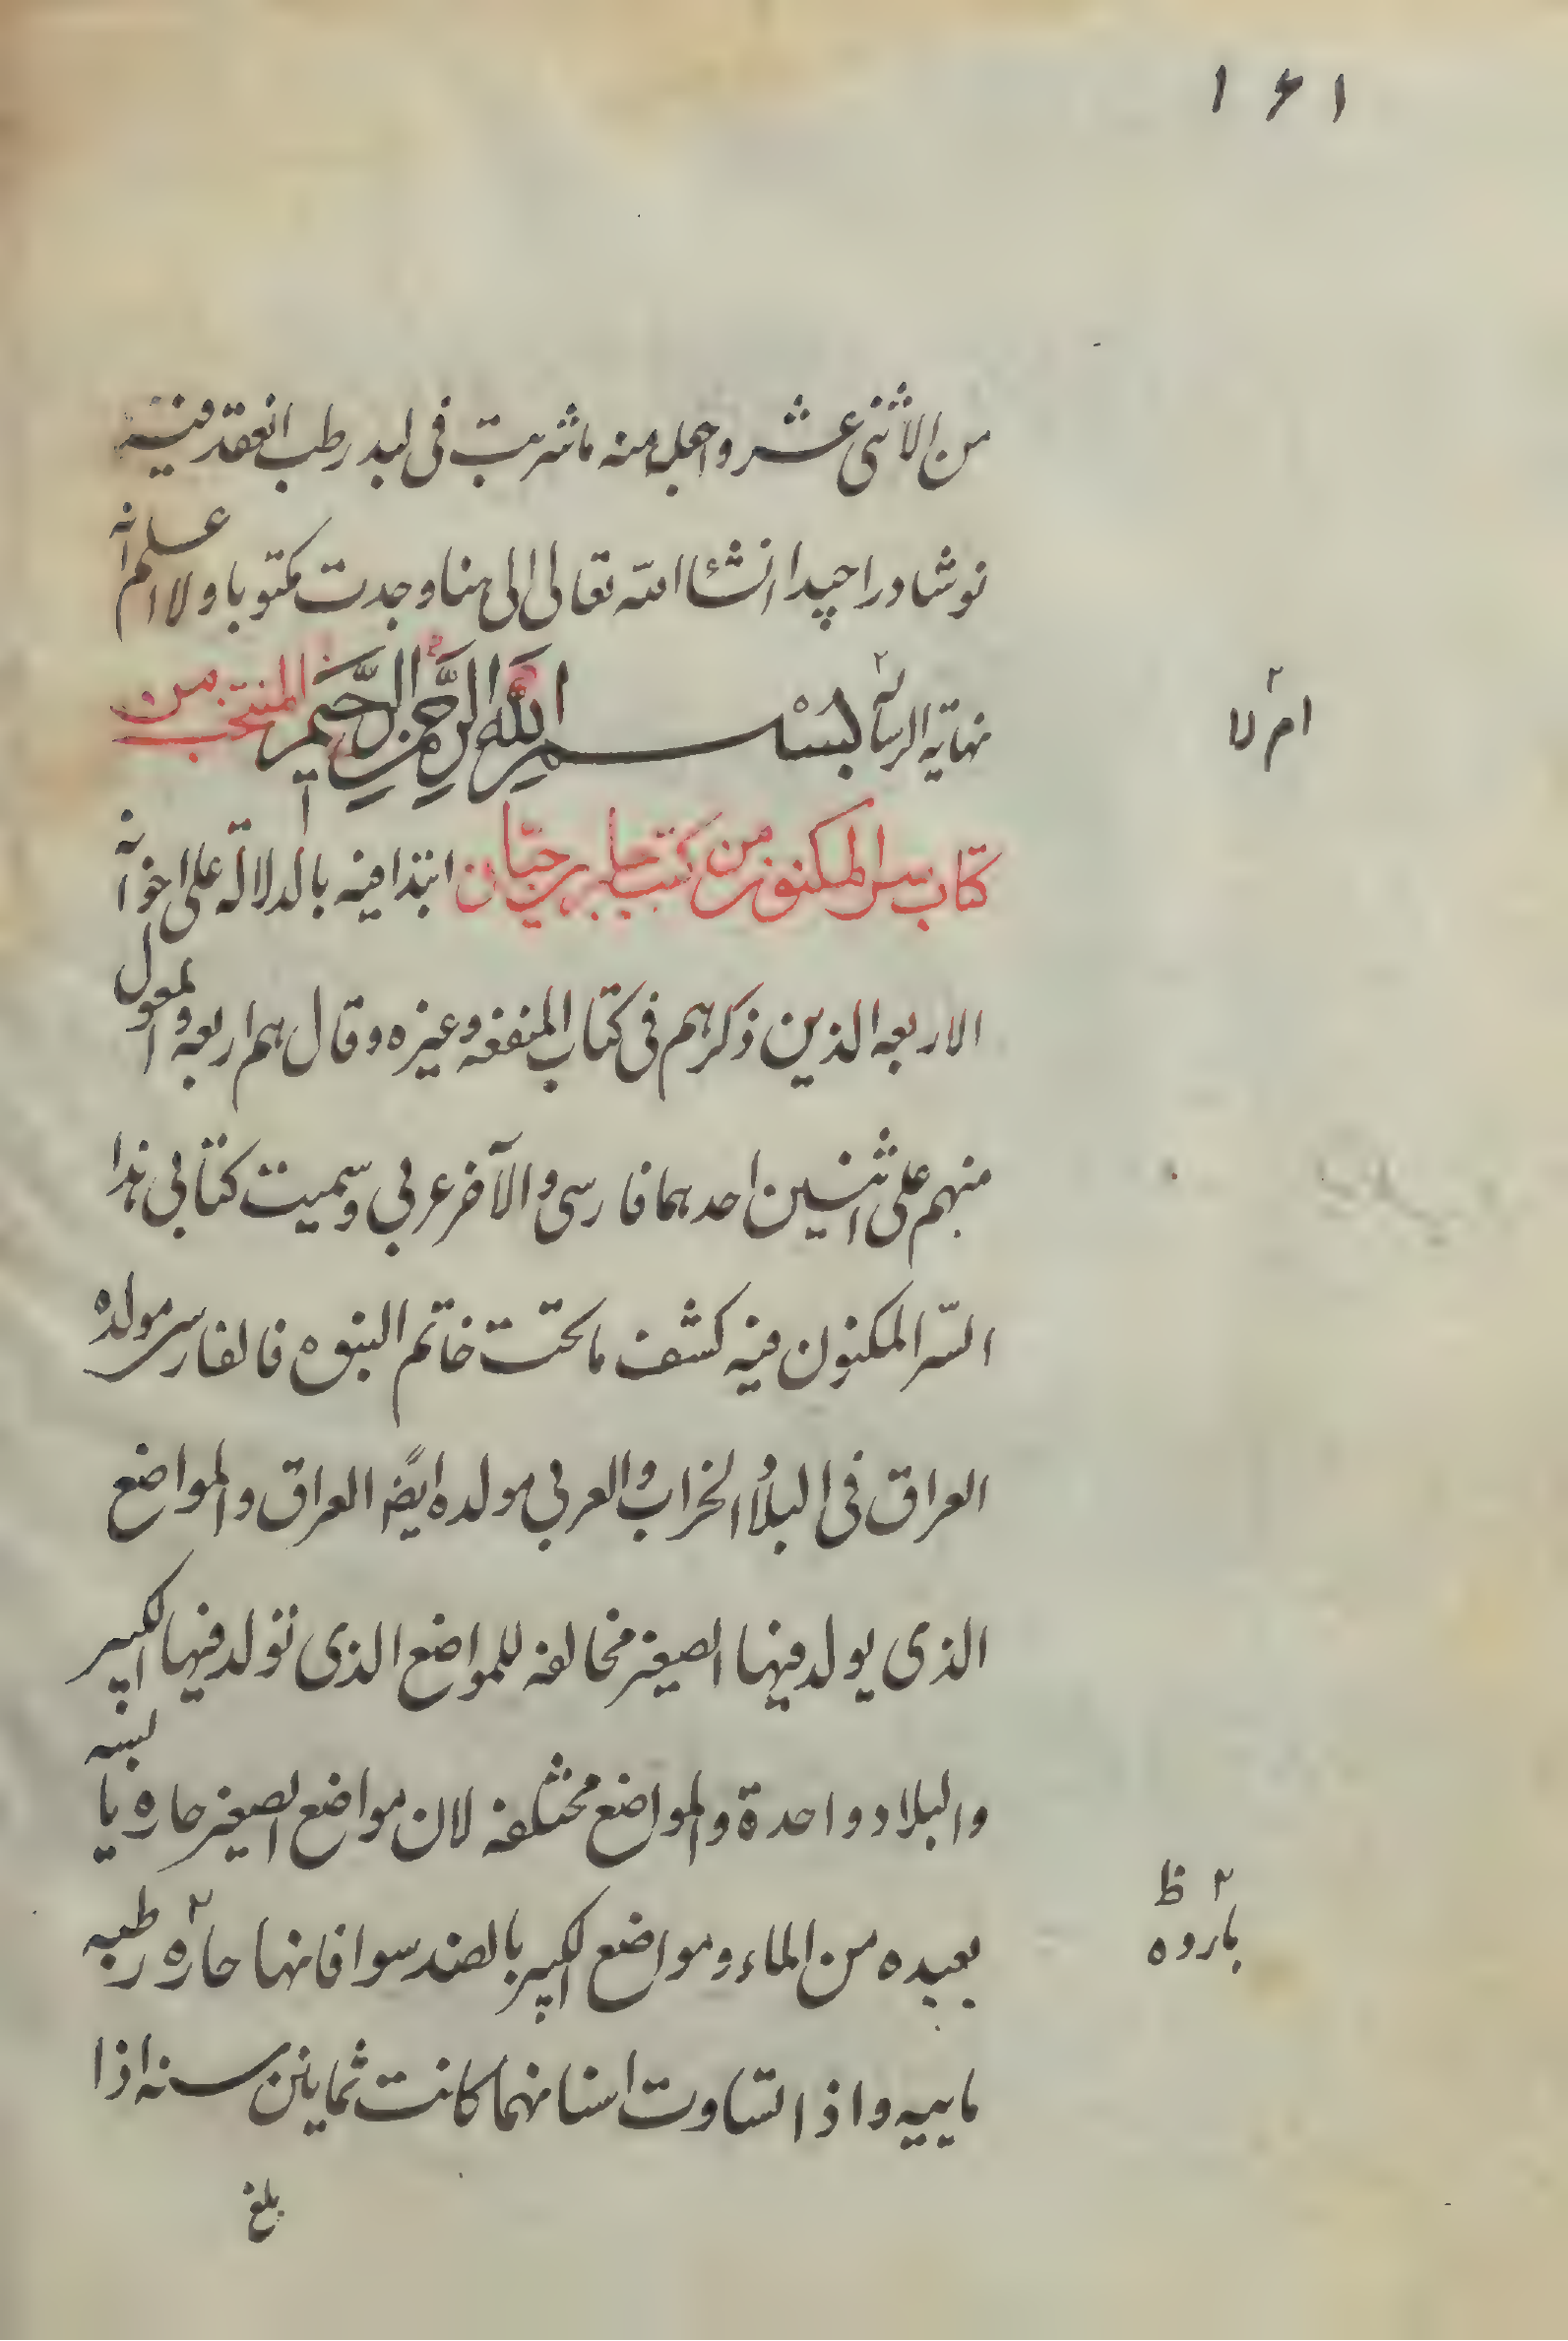 ۱۶۱
من الاثنی عشر واجعل منه ما شربت فی لبد رطب انعقد فیه
نوشادرا جیدا انشاء الله تعالی الی هنا وجدت مکتوبا ولا اعلم انه
نهایة الرسالة بسم الله الرحمن الرحیم المنتخب من
ام لا
کتاب سر المکنون من کتب جابر حیان ابتدا فیه بالدلالة علی اخوانه
الاربعه الذین ذکرهم فی کتاب المنفعه وغیره وقال هم اربعه والمعول
منهم علی اثنین احدهما فارسی والآخر عربی وسمیت کتابی هذا
السّر المکنون فیه کشف ما تحت خاتم النبوه فالفارسی مولده
العراق فی البلاد الخراب والعربی مولده ایضا العراق والمواضع
الذی یولد فیها الصغیر مخالفه للمواضع الذی تولد فیها الکبیر
والبلاد واحدة والمواضع مختلفه لان مواضع الصغیر حاره یابسه
بعیده من الماء ومواضع الکبیر بالضد سوا فانها حاره رطبه
بارده ظ
ماییه واذا تساوت اسنانهما کانت ثمانین سنه اذا
بلغ